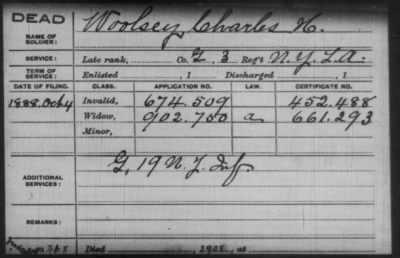 DEAD
NAME OF SOLDIER: Woolsey, Charles H.
SERVICE: Late rank, Co. G, 3 Reg't N.Y.L.A.
TERM OF SERVICE: Enlisted , 1 Discharged , 1
DATE OF FILING. CLASS. APPLICATION NO. LAW. CERTIFICATE NO.
1888. Oct 4 Invalid, 674.509 452.488
Widow, 902.750 a 661.293
Minor,
ADDITIONAL SERVICES: G, 19 N.Y. Inf.
REMARKS:
Died , 1908, at